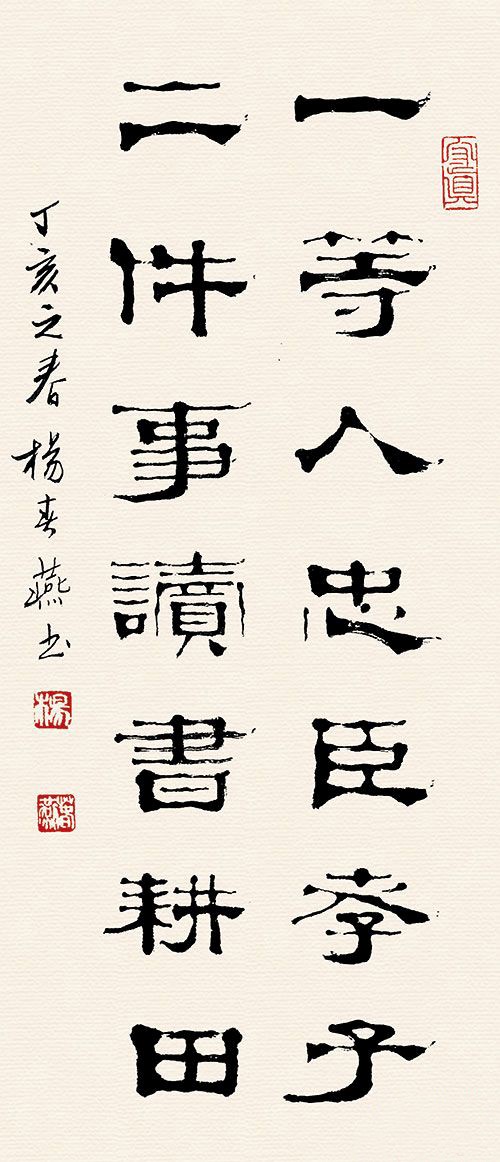 一等人忠臣孝子
二件事讀書耕田
丁亥之春楊春燕书
楊